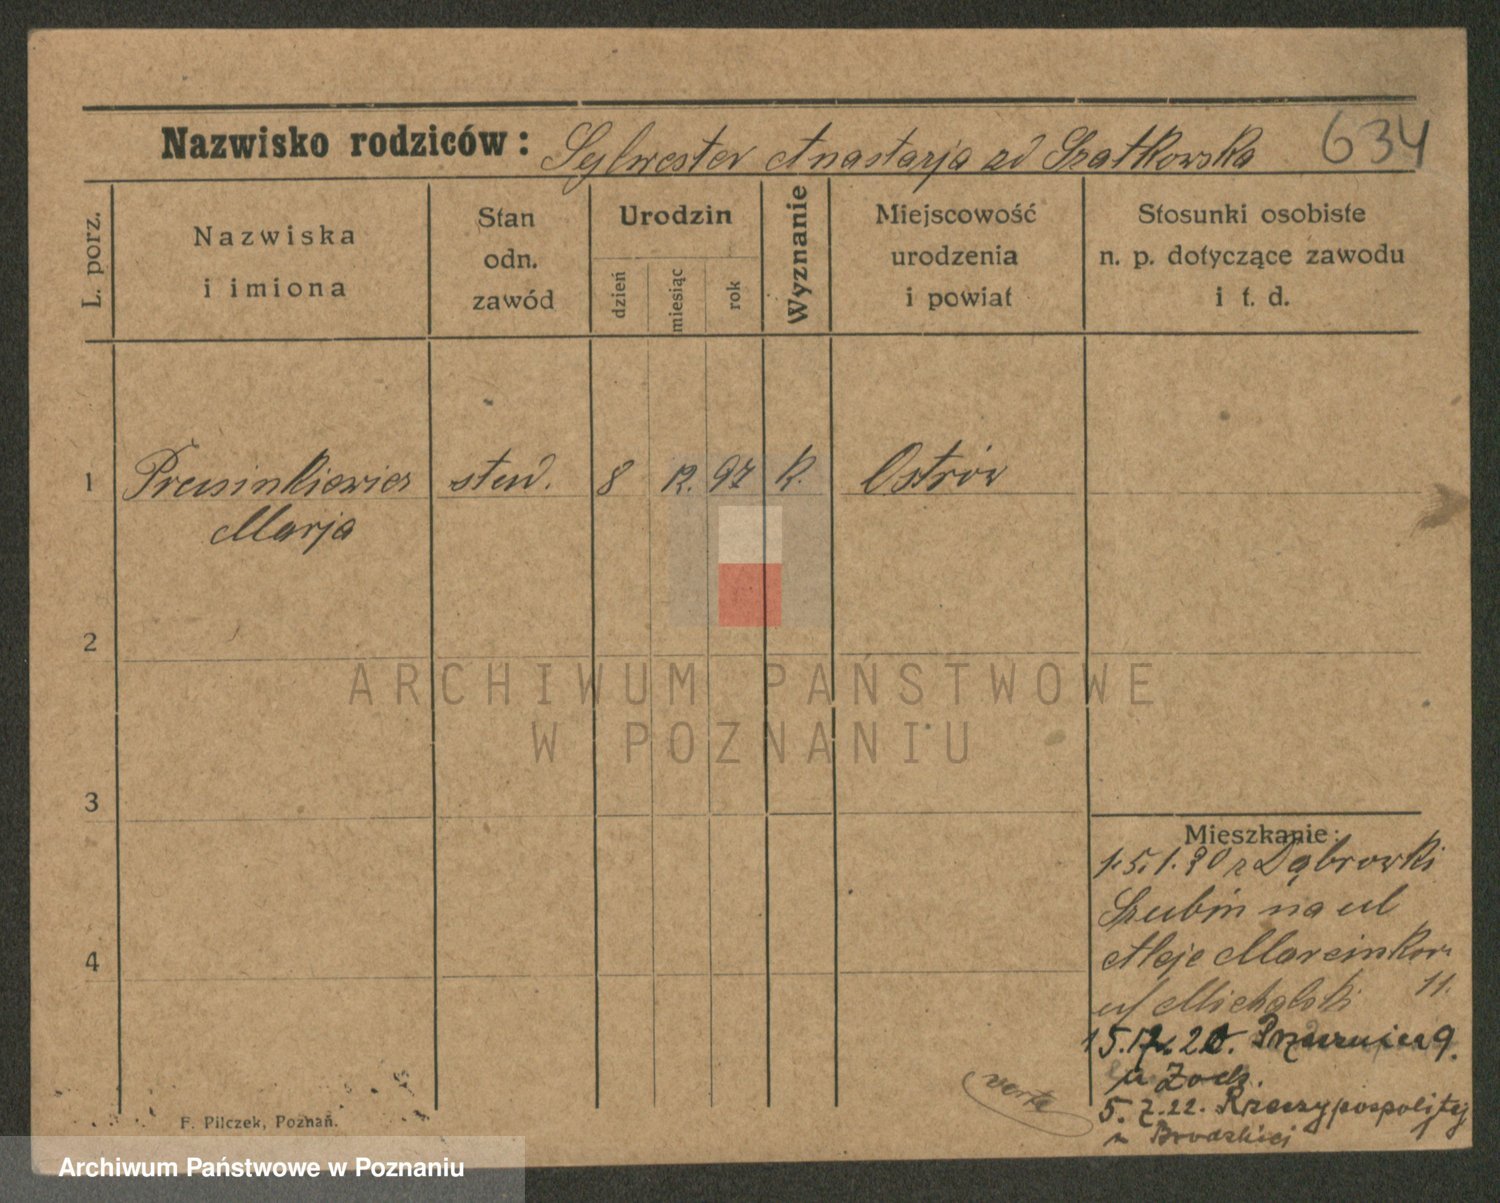 634
Nazwisko rodziców: Sylwester Anastazja zd Szatkowska
L. porz.
Nazwiska
i imiona
Stan
odn.
zawód
Urodzin
dzień
miesiąc
rok
Wyznanie
Miejscowość
urodzenia
i powiat
Stosunki osobiste
n. p. dotyczące zawodu
i t. d.
1 Prusinkiewicz stud. 8 12. 97 k. Ostrów
Marja
2
3
4
Mieszkanie:
15.1.20 z Dąbrowki
Szubin na ul
Aleje Marcinkow.
u/ Michalski 11.
9.
u Zoch.
5.7.22. Rzeczypospolitej
u
verte
F. Pilczek, Poznań.
ARCHIWUM PAŃSTWOWE
W POZNANIU
Archiwum Państwowe w Poznaniu